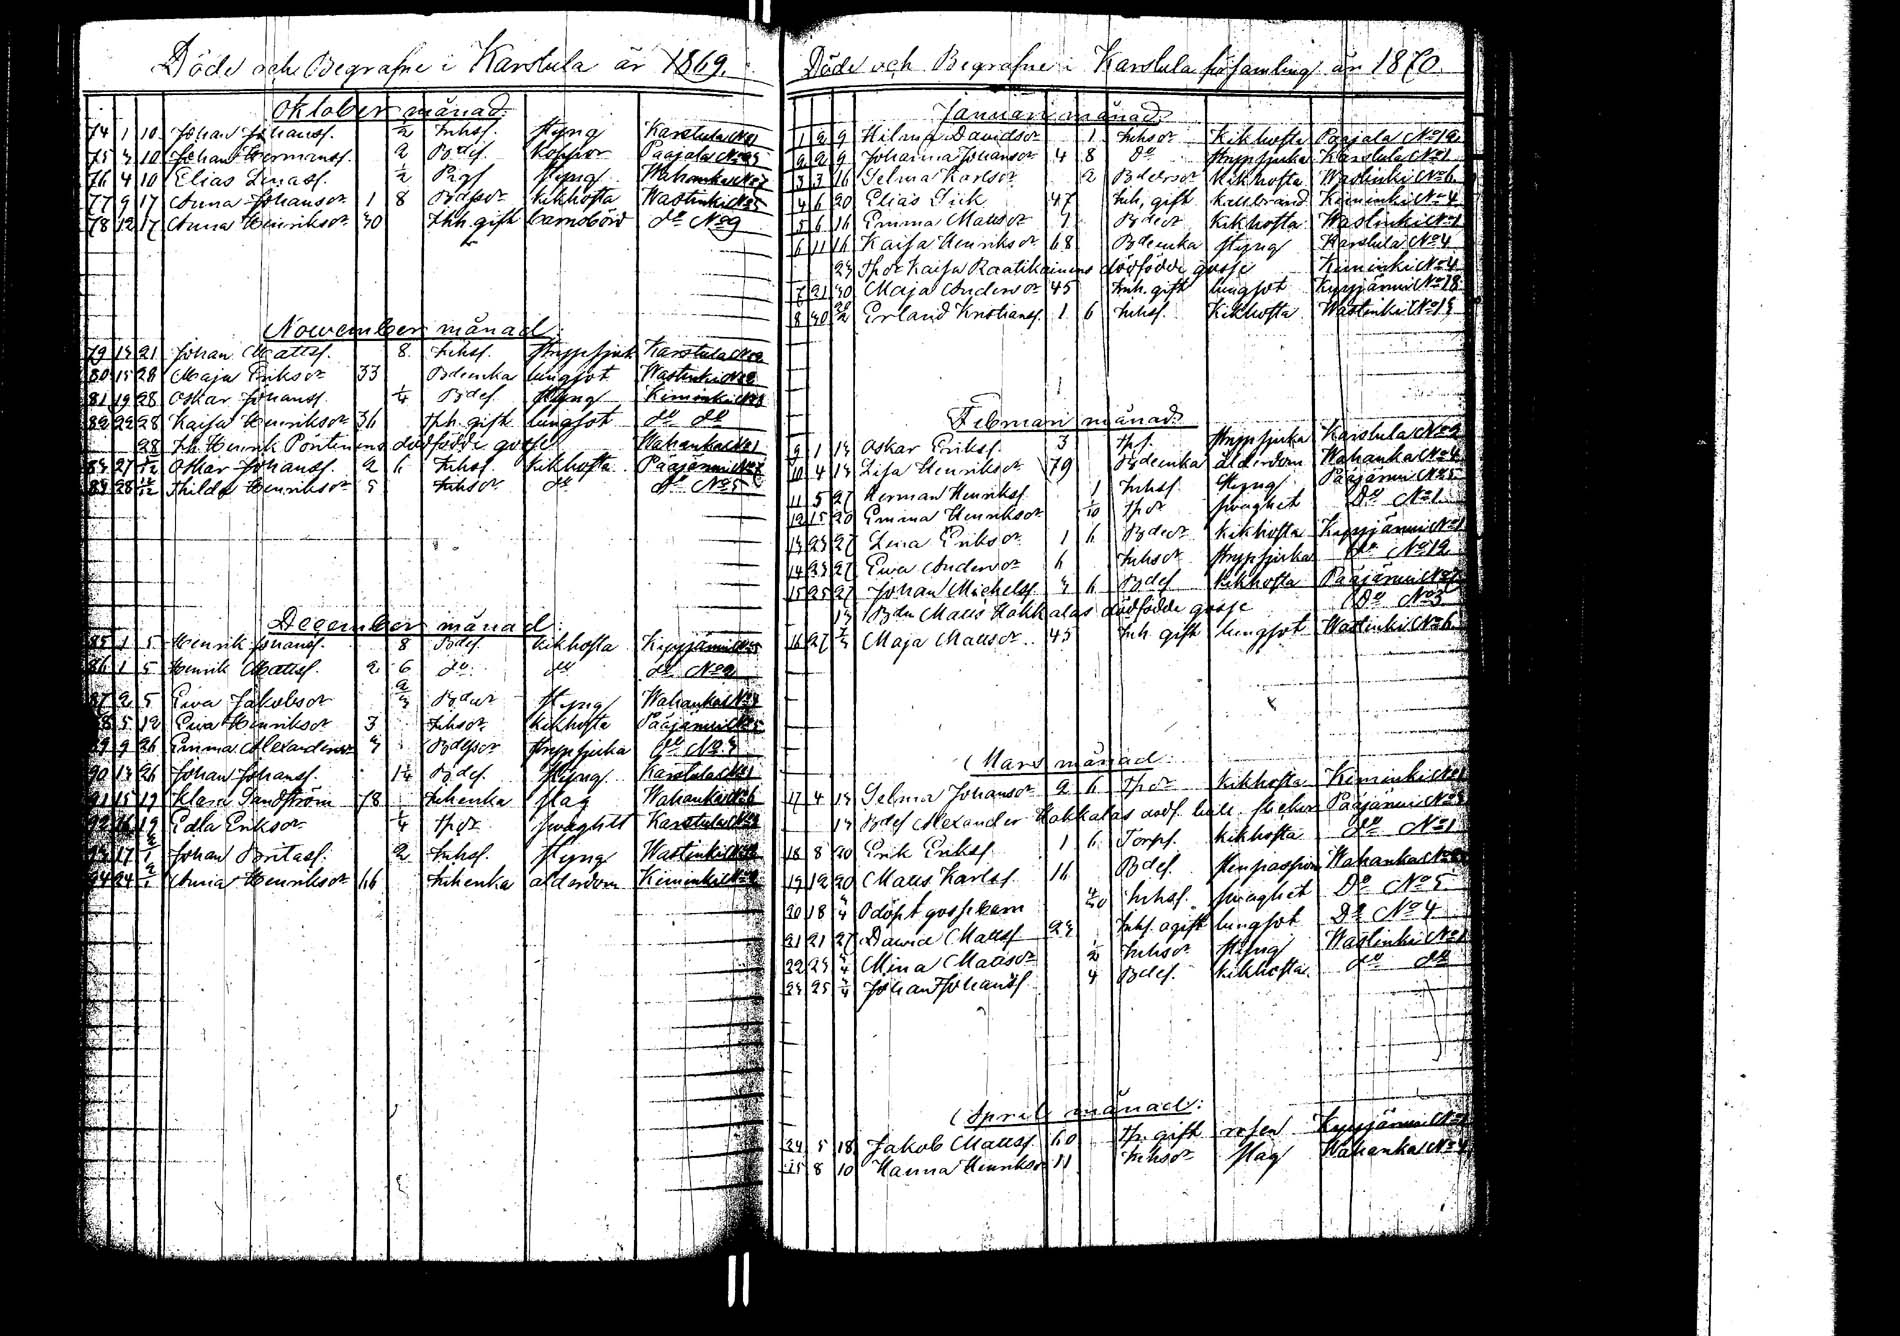 Döde och Begrafne i Karstula år 1869.
Oktober månad.
74 1 10 Johan Johansf. 1/2 Inhsf. Styng Karstula No 1
75 3 10 Johan Hermansf. 2 Bdsf. Koppor Pääjälä No 23
76 4 10 Elias Linasf. 1/2 Pigs Styng Wahanka No 7
77 9 17 Anna Johansdr 1 8 Bdsdr Kikhosta Wastinki No 5
78 12 17 Anna Henriksdr 30 Inh. gift barnsbörd do No 9
Nowember månad:
79 13 21 Johan Mattsf. 8 Inhsf. Strypsjuk Karstula No 2
80 15 28 Maja Eriksdr 33 Bdeenka lungsot Wastinki No 2
81 19 28 Oskar Johansf. 1/4 Bdsf. Styng Kiminki No 3
82 22 28 Kaisa Henriksdr 36 Tph. gift lungsot do do
28 Ih. Henrik Pöntinens dödfödde gosse Wahanka No 1
83 27 5/12 Oskar Johansf. 2 6 Inhsf. Kikhosta Pääjärvi No 7
84 28 12/12 Thilda Henriksdr 5 Inhsdr do do No 5
December månad:
85 1 5 Henrik Johansf. 8 Bdsf. Kikhosta Kyyjärvi No 5
86 1 5 Henrik Mattsf. 2 6 do do do No 2
87 2 5 Ewa Jakobsdr 2/3 Bdsdr Styng Wahanka No 3
88 5 12 Ewa Henriksdr 3 Inhsdr Kikhosta Pääjärvi No 5
89 9 26 Emma Alexandersdr 3 Bdsdr Strypsjuka do No 3
90 13 26 Johan Johansf. 1/4 Bdsf. Styng Karstula No 1
91 15 19 Klara Sandström 78 Inhenka slag Wahanka No 6
92 16 19 Edla Eriksdr 1/4 Tpdr swaghet Karstula No 3
93 17 2/1 Johan Britasf. 2 Inhsf. Styng Wastinki
94 24 2/1 Anna Henriksdr 66 Inhenka ålderdom Kiminki No 2
Döde och Begrafne i Karstula församling år 1870.
Januari månad:
1 2 9 Hilma Davidsdr 1 Inhsdr Kikhosta Pääjälä No 12
2 2 9 Johanna Johansdr 4 8 do Strypsjuka Karstula No 1
3 3 16 Selma Karlsdr 2 Bdersdr Kikhosta Wastinki No 6
4 6 20 Elias Sick 47 Inh. gift Kallbrand Kiminki No 4
5 6 16 Emma Mattsdr 7 Bdsdr Kikhosta Wastinki No 1
6 11 16 Kaisa Henriksdr 68 Bdeenka Styng Karstula No 4
23 Tpdr Kaisa Raatikainens dödfödde gosse Kiminki No 4
7 21 30 Maja Andersdr 45 Inh. gift lungsot Kyyjärvi No 18
8 30 20/2 Erland Kristiansf. 1 6 Inhsf. Kikhosta Wastinki No 13
Februari månad:
9 1 13 Oskar Eriksf. 3 Tpsf. Strypsjuka Karstula No 2
10 4 13 Lisa Henriksdr 79 Bdeenka ålderdom Wahanka No 4
11 5 27 Herman Henriksf. 1 Inhsf. Styng Pääjärvi No 5
12 15 20 Emma Henriksdr 1/10 Tpdr swaghet Do No 1
13 23 27 Lina Eriksdr 1 6 Bdsdr Kikhosta Kyyjärvi No 1
14 23 27 Ewa Andersdr 6 Inhsdr Strypsjuka do No 12
15 25 27 Johan Michelsf. 3 6 Bdsf Kikhosta Pääjärvi No 7
13 Bdn Matts Hakkalas dödfödde gosse Do No 3
16 27 7/3 Maja Mattsdr 45 Inh. gift lungsot Wastinki No 6
Mars månad:
17 4 13 Selma Johansdr 2 6 Tpdr Kikhosta Kiminki No 1
13 Bdsf Alexander Hakkalas dödf. Pääjärvi No 3
18 8 20 Erik Eriksf. 1 6 Torpsf. Kikhosta do No 1
19 12 20 Matts Karlsf. 16 Bdsf. stenpassion Wahanka
20 18 3/4 Odöpt gossebarn 4/30 Inhsf. swaghet Do No 5
21 21 27 Dawid Mattsf 23 Inhsf. ogift lungsot Do No 4
22 23 3/4 Mina Mattsdr 1/2 Inhsdr Styng Wastinki No 1
23 25 3/4 Johan Johansf 4 Bdsf. Kikhosta do do
April månad:
24 5 18 Jakob Mattsf 60 Tp. gift rosen Kyyjärvi No 1
25 8 10 Hanna Henriksdr 11 Inhsdr slag Wahanka No 4